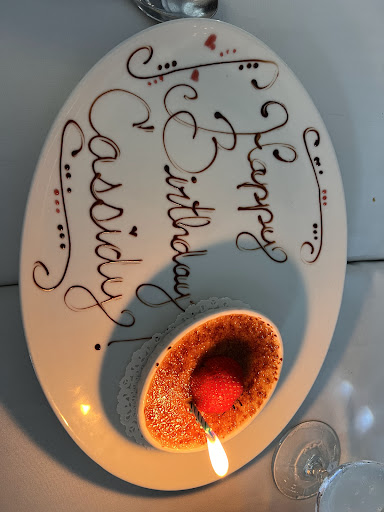 Happy
Birthday
Cassidy!